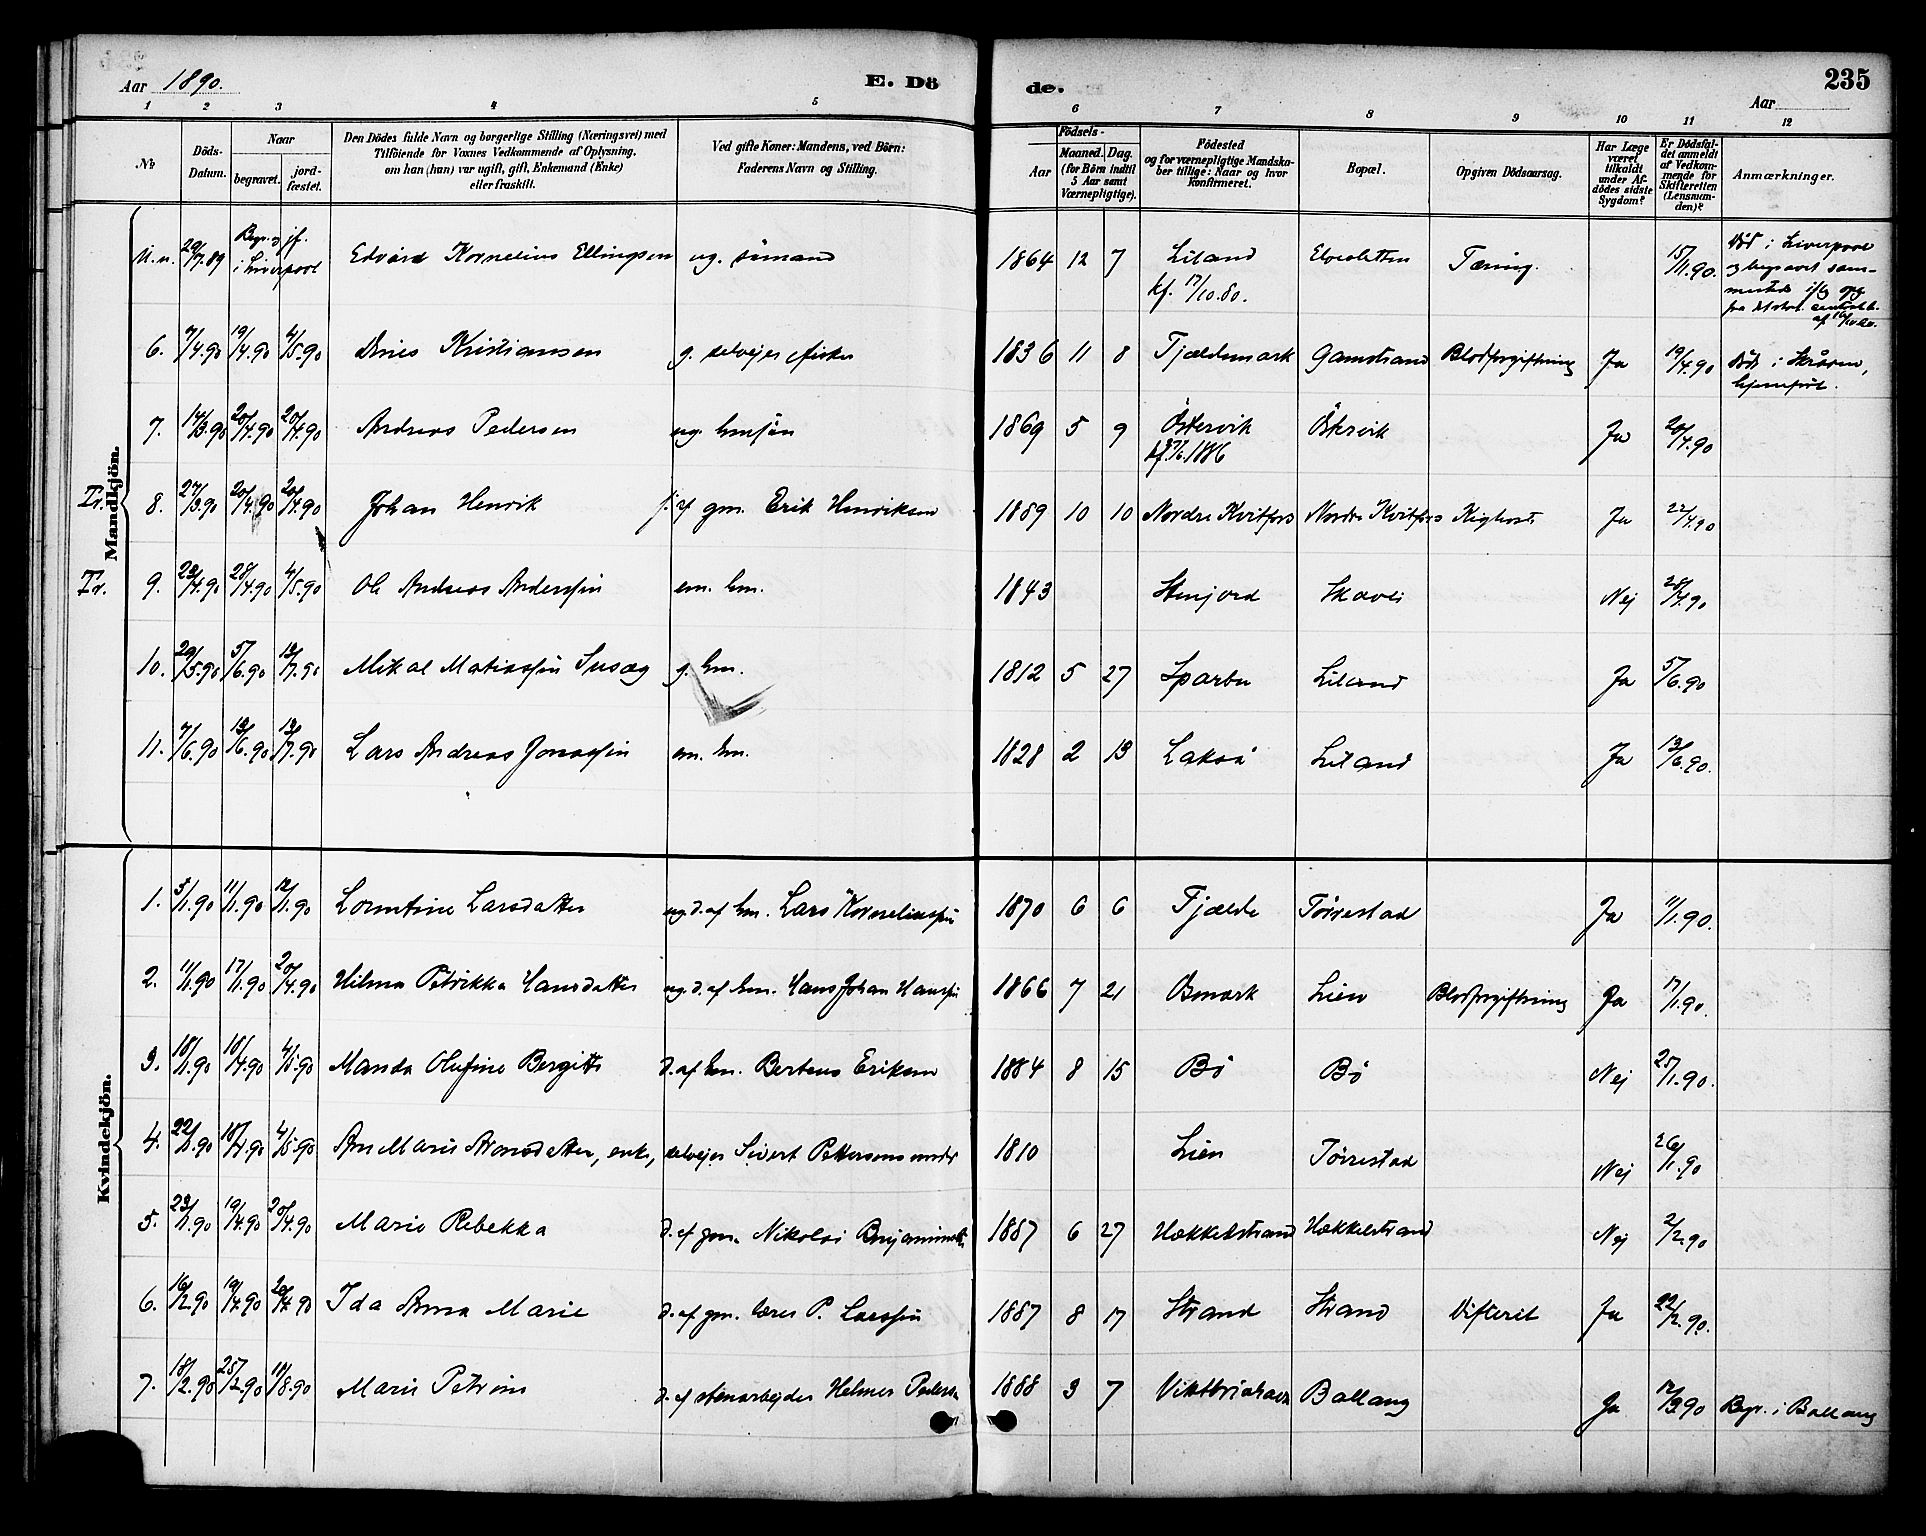 Aar 1890.
E. Dö
de.
235
Aar
1 2 3 4 5 6 7 8 9 10 11 12
№
Döds-Datum.
Naar
begravet.
jord-fæstet.
Den Dödes fulde Navn og borgerlige Stilling (Næringsvei) med
Tilföiende for Voxnes Vedkommende af Oplysning,
om han (hun) var ugift, gift, Enkemand (Enke)
eller fraskilt.
Ved gifte Koner: Mandens, ved Börn:
Faderens Navn og Stilling.
Födsels-
Aar
Maaned. Dag.
(for Börn indtil
5 Aar samt
Værnepligtige).
Födested
og for værnepligtige Mandska-
ber tillige: Naar og hvor
konfirmeret.
Bopæl.
Opgiven Dödsaarsag.
Har Læge
været
tilkaldt
under Af-
dödes sidste
Sygdom?
Er Dödsfal-
det anmeldt
af Vedkom-
mende for
Skifteretten
(Lensman-
den)?
Anmærkninger.
Mandkjön.
U.n. 29/7.89 Begr. og jf. i Liverpool Edvard Kornelius Ellingsen ug. sömand 1864 12 7 Liland kf. 17/10.80. Elvesletten Tæring. 15/11.90. Död i Liverpool
og begravet sam-
mesteds
6. 7/4.90 19/4.90 4/5.90 Dines Kristiansen g. selvejer fisker 1836 11 8 Fjældmark Gamstrand Blodforgiftning Ja 19/4.90 Död i Skråven,
hjemført.
7. 14/3.90 20/4.90 20/4.90 Andreas Pedersen ug. hmsön 1869 5 9 Östervik Östervik Ja 20/4.90
Tv. 8. 27/3.90 20/4.90 20/4.90 Johan Henrik f. af gm. Erik Henriksen 1889 10 10 Nordre Kvitfors Nordre Kvitfors Kighoste Ja 22/4.90
Tv. 9. 23/4.90 28/4.90 4/5.90 Ole Andreas Anderssen em. hm. 1843 Stenjord Skavli Nej 28/4.90
10. 29/5.90 5/6.90 13/7.90 Mikal Matiassen Susæg g. hm. 1812 5 27 Sparbu Liland Ja 5/6.90
11. 7/6.90 13/6.90 13/7.90 Lars Andreas Jonassen em. hm. 1828 2 13 Lakså Liland Ja 13/6.90.
Kvindekjön.
1. 5/1.90 11/1.90 12/1.90 Lorntine Larsdatter ug. d. af hm. Lars Korneliussen 1870 6 6 Fjælde Törrestad Ja 11/1.90.
2. 11/1.90 17/1.90 20/4.90 Hilma Petrikka Hansdatter ug. d. af hm. Hans Johan Hanssen 1866 7 21 Osmark Lien Blodforgiftning Ja 17/1.90.
3. 18/1.90 18/4.90 4/5.90 Manda Olufine Bergitte d. af hm. Berteus Eriksen 1884 8 15 Bö Bö Nej 25/1.90.
4. 22/1.90 18/4.90 4/5.90 Ane Marie Aronsdatter, enke, selvejer Sivert Pettersens moder 1810 Lien Törrestad Nej 26/1.90
5. 23/1.90 19/4.90 20/4.90 Marie Rebekka d. af gm. Nikolai Benjaminsen 1887 6 27 Hækkelstrand Hækkelstrand Nej 2/2.90
6. 16/2.90 19/4.90 20/4.90 Ida Anna Marie d. af gm. lærer P. Larssen 1887 8 17 Strand Strand Difterit Ja 22/2.90.
7. 18/2.90 25/2.90 10/8.90 Marie Petrine d. af stenarbejder Helmer Peders. 1888 3 7 Viktoriahavn Ballang Ja 12/3.90 Begr. i Ballang